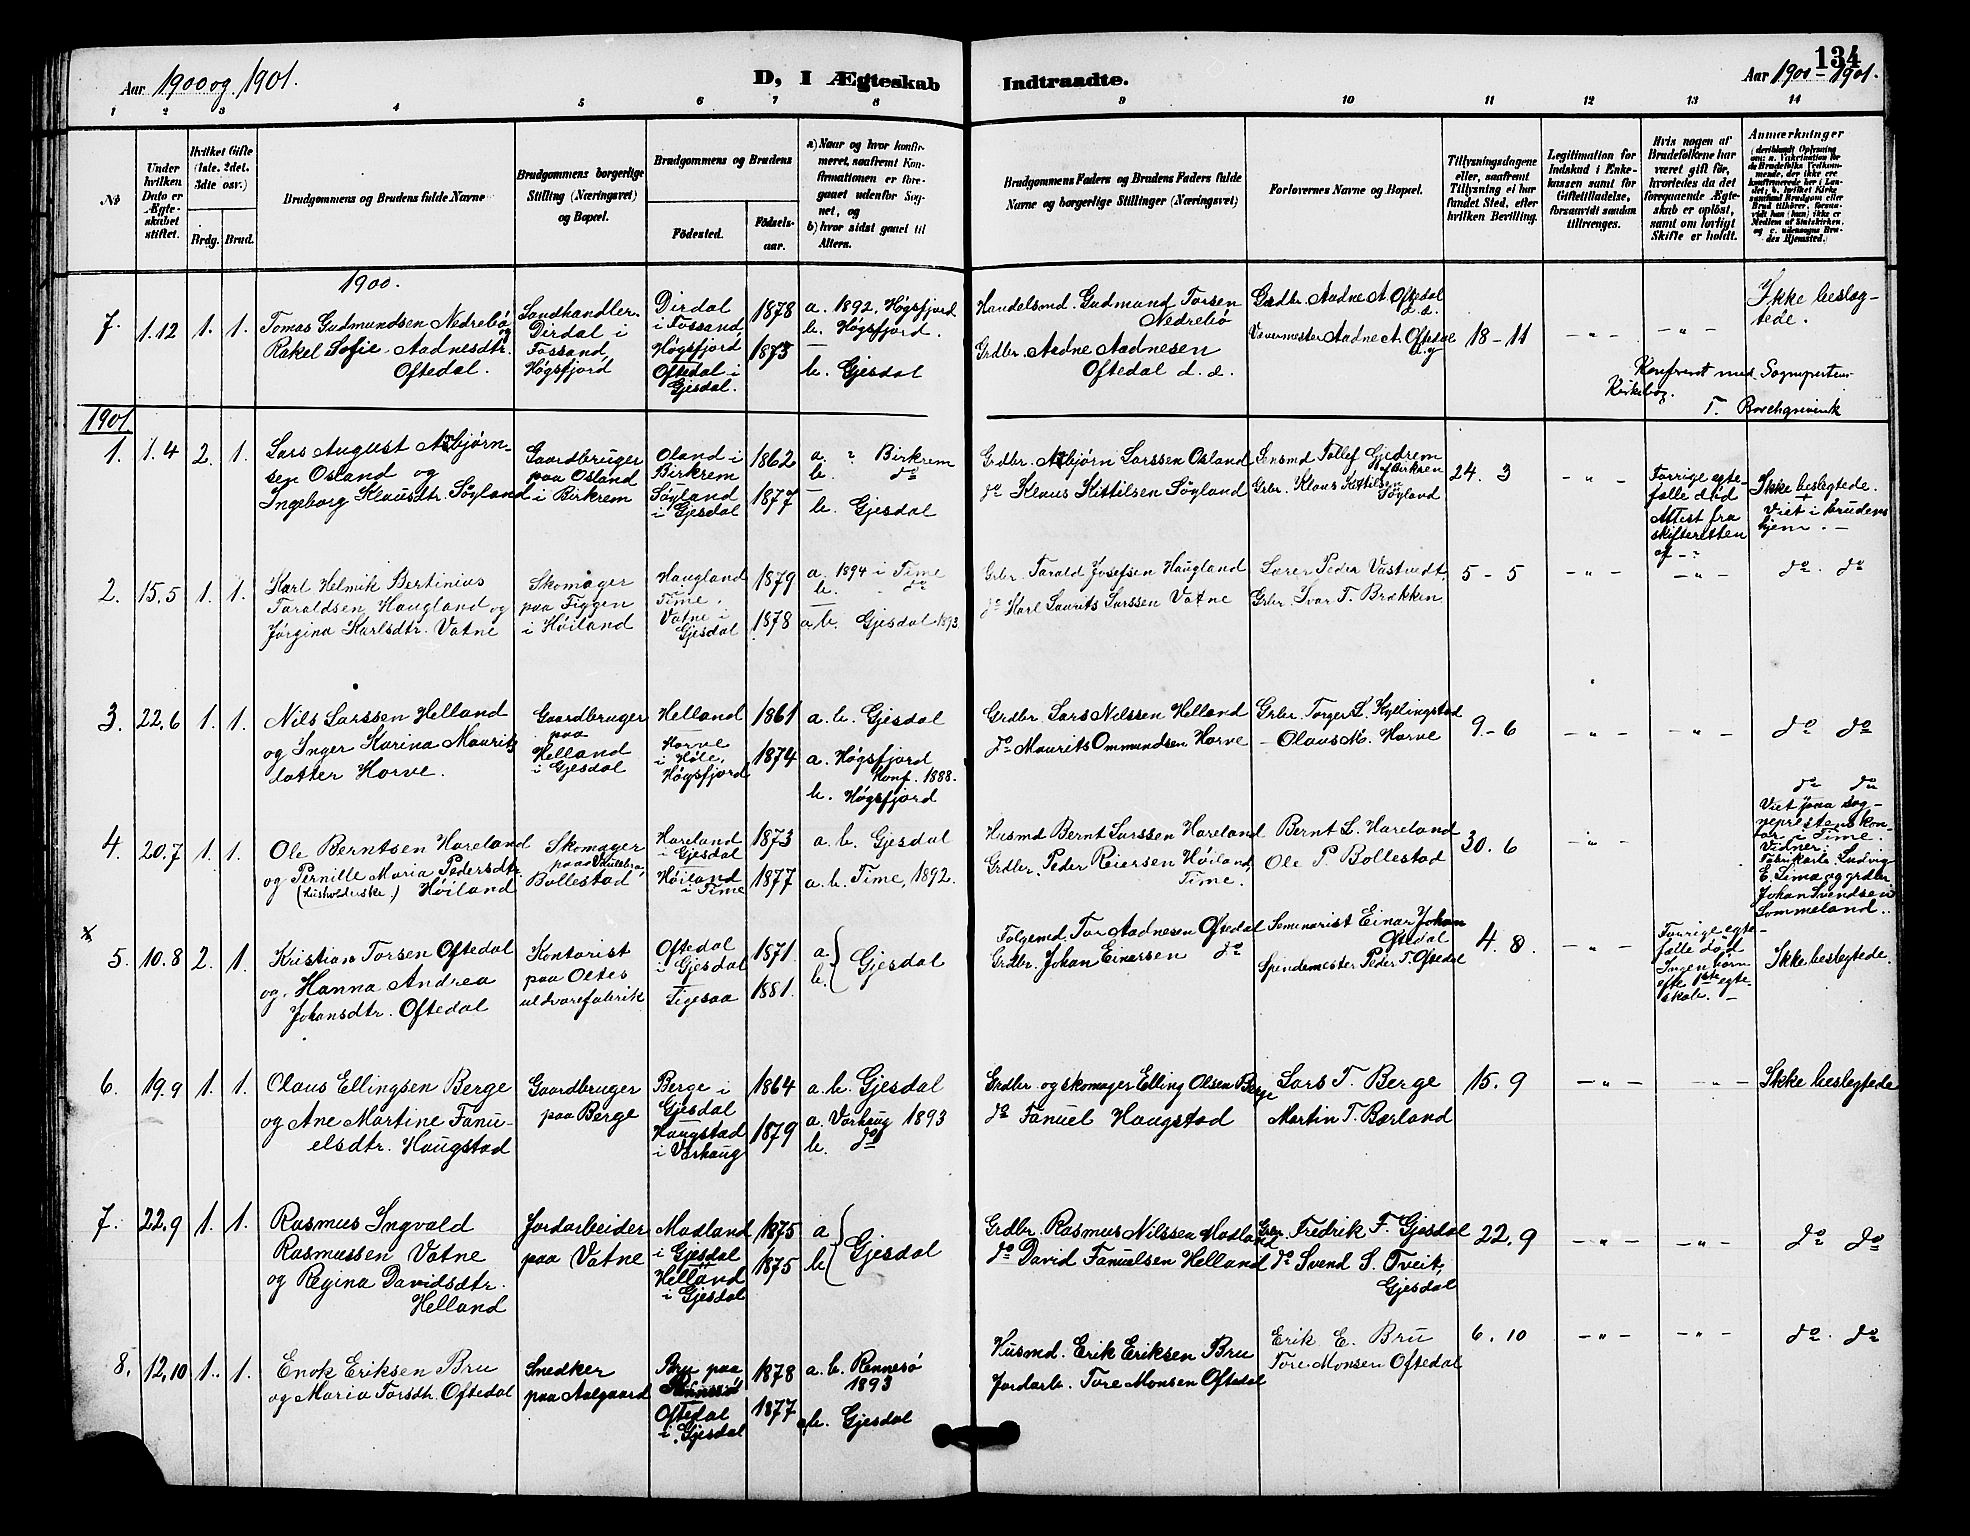 134
Aar 1900 og 1901.
D, I Ægteskab
Indtraadte.
Aar 1900 - 1901.
1 2 3 4 5 6 7 8 9 10 11 12 13 14
No
Under hvilken Dato er Ægteskabet stiftet.
Hvilket Gifte (1ste. 2det. 3die osv.)
Brdg. Brud.
Brudgommens og Brudens fulde Navne
Brudgommens borgerlige Stilling (Næringsvei) og Bopæl.
Brudgommens og Brudens
Fødested.
Fødselsaar.
a) Naar og hvor konfirmeret, saafremt Konfirmationen er foregaaet udenfor Sognet, og
b) hvor sidst gaaet til Alters.
Brudgommens Faders og Brudens Faders fulde Navne og borgerlige Stillinger (Næringsvei)
Forlovernes Navne og Bopæl.
Tillysningsdagene eller, saafremt Tillysning ei har fundet Sted, efter hvilken Bevilling.
Legitimation for Indskud i Enkekassen samt for Giftetilladelse, forsaavidt saadan tiltrænges.
Hvis nogen af Brudefolkene har været gift før, hvorledes da det foregaaende Ægteskab er opløst, samt om lovligt Skifte er holdt.
Anmærkninger
1900.
7. 1.12 1. 1.
Tomas Gudmundsen Nedrebö og
Rakel Sofie Aadnesdtr.
Oftedal.
Landhandler
Dirdal i
Fossand,
Høgsfjord
Dirdal
i Fossand
Høgsfjord
Oftedal i
Gjesdal.
1878
1873
a. 1892. Høgsfjord
b. Høgsfjord.
b. Gjesdal
Handelsmd. Gudmund Torsen
Nedrebö
Grdbr. Aadne Aadnesen
Oftedal d. e.
Grdbr. Aadne A. Oftedal
d. e.
Vævermester Aadne A. Oftedal
d. y
18 - 11
- " -
- " -
Ikke beslægtede.
Konfereret med Sogneprestens
Kirkebog.
T. Borchgrevink
1901
1. 1.4 2. 1.
Lars August Asbjørnsen
Osland og
Ingeborg Klausdtr. Søyland
Gaardbruger
paa Osland
i Birkrem
Oland i
Birkrem
Søyland
i Gjesdal
1862
1877
a. " Birkrem
b. do
b. Gjesdal
Grdbr. Asbjørn Larssen Osland
do Klaus Kittilsen Søyland
Lensmd Tollef Gjedrem
Birkrem
Grbr. Klaus Kittilsen
Søyland
24. 3
- " -
Forrige egtefolle död
Attest fra
skifteretten
Ikke beslegtede.
Viet i brudens
hjem. -
2. 15.5 1. 1.
Karl Helmik Bertinius
Taraldsen Haugland og
Jörgina Karlsdtr. Vatne
Skomager
paa Figgen
i Høiland
Haugland
Time.
Vatne i
Gjesdal
1879
1878
a. 1894 i Time
b. do
a. b. Gjesdal 1893.
Grbr. Tarald Josefsen Haugland
do Karl Laurits Larssen Vatne
Lærer Peder Vastvedt,
Grbr. Ivar T. Brækken
5 - 5
- " -
- " -
do. do
3. 22.6 1. 1.
Nils Larssen Helland
og Inger Karina Maurits
datter Horve.
Gaardbruger
paa
Helland
i Gjesdal
Helland
Horve
i Høle,
Høgsfjord
1861
1874
a. b. Gjesdal
a. Høgsfjord
Konf. 1888.
b. Høgsfjord
Grdbr. Lars Nilssen Helland
do Maurits Ommundsen Horve
Grbr. Torger L. Kyllingstad
- Olaus M. Horve
9 - 6
- " -
- " -
do do
4. 20.7 1. 1.
Ole Berntsen Hareland
og Pernille Maria Pedersdtr.
(husholderske.) Høiland
Skomager
paa
Bollestad
Hareland
i Gjesdal
Høiland
i Time
1873
1877
a. b. Gjesdal
a. b. Time, 1892.
Husmd Bernt Larssen Hareland
Grdbr. Peder Reiersen Høiland,
Time.
Bernt L. Hareland
Ole P. Bollestad
30. 6
- " -
do do
Viet paa sogneprestens kontor i Time.
Vidner:
Fabrikarb. Ludvig
E. Lima og grdbr
Johan Svendsen
Lommeland.
x
5. 10.8 2. 1.
Kristian Torsen Oftedal
og. Hanna Andrea
Johansdtr. Oftedal
Kontorist
paa Oltes
uldvarefabrik
Oftedal
i Gjesdal
Tigesaa
1871.
1881.
a
b. } Gjesdal
Folgemd. Tor Aadnesen Oftedal
Grdbr. Johan Einarsen do
Seminarist Einar Johan
Oftedal
Spindemester Peder T. Oftedal
4. 8.
- " -
Forrige egtefolle død
Ingen børn
efter 1ste egteskab. -
Ikke beslegtede.
6. 19.9 1. 1.
Olaus Ellingsen Berge
og Ane Martine Fanuelsdtr. Haugstad
Gaardbruger
paa Berge
Berge i
Gjesdal
Haugstad
i Varhaug
1864
1879
a. b. Gjesdal
a. Varhaug 1893
b. do
Grdbr. og skomager Elling Olsen Berge
do Fanuel Haugstad
Lars T. Berge
Martin T. Bærland
15. 9
- " -
- " -
Ikke beslegtede
7. 22.9 1. 1.
Rasmus Ingvald
Rasmussen Vatne
og Regina Davidsdtr.
Helland
Jordarbeider
paa Vatne
Madland
i Gjesdal
Helland
i Gjesdal
1875
1875
a
b } Gjesdal
Grdbr. Rasmus Nilssen Madland
do David Fanuelsen Helland
Grbr. Fredrik F. Gjesdal
do Svend S. Tveit,
Gjesdal
22. 9
- " -
- " -
do do
8. 12.10 1. 1.
Enok Eriksen Bru
og Maria Torsdtr. Oftedal
Snedker
paa Aalgaard
Bru paa
Rennesø
Oftedal
i Gjesdal
1878
1877
a. b. Rennesø
1893
b. Gjesdal
Husmd. Erik Eriksen Bru
Jordarb. Tore Monsen Oftedal
Erik E. Bru
Tore Monsen Oftedal
6. 10
- " -
- " -
do. do